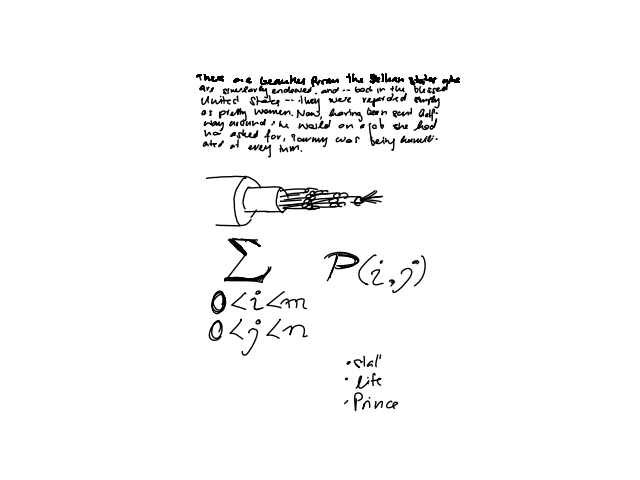 There are beauties from the Balkan states who
are similarly endowed, and -- back in the blessed
United States -- they were regarded simply
as pretty women. Now, having been sent half-
way around the world on a job she had
not asked for, Tommy was being humili-
ated at every turn.
∑ P(i,j)
0<i<m
0<j<n
• life
• Prince